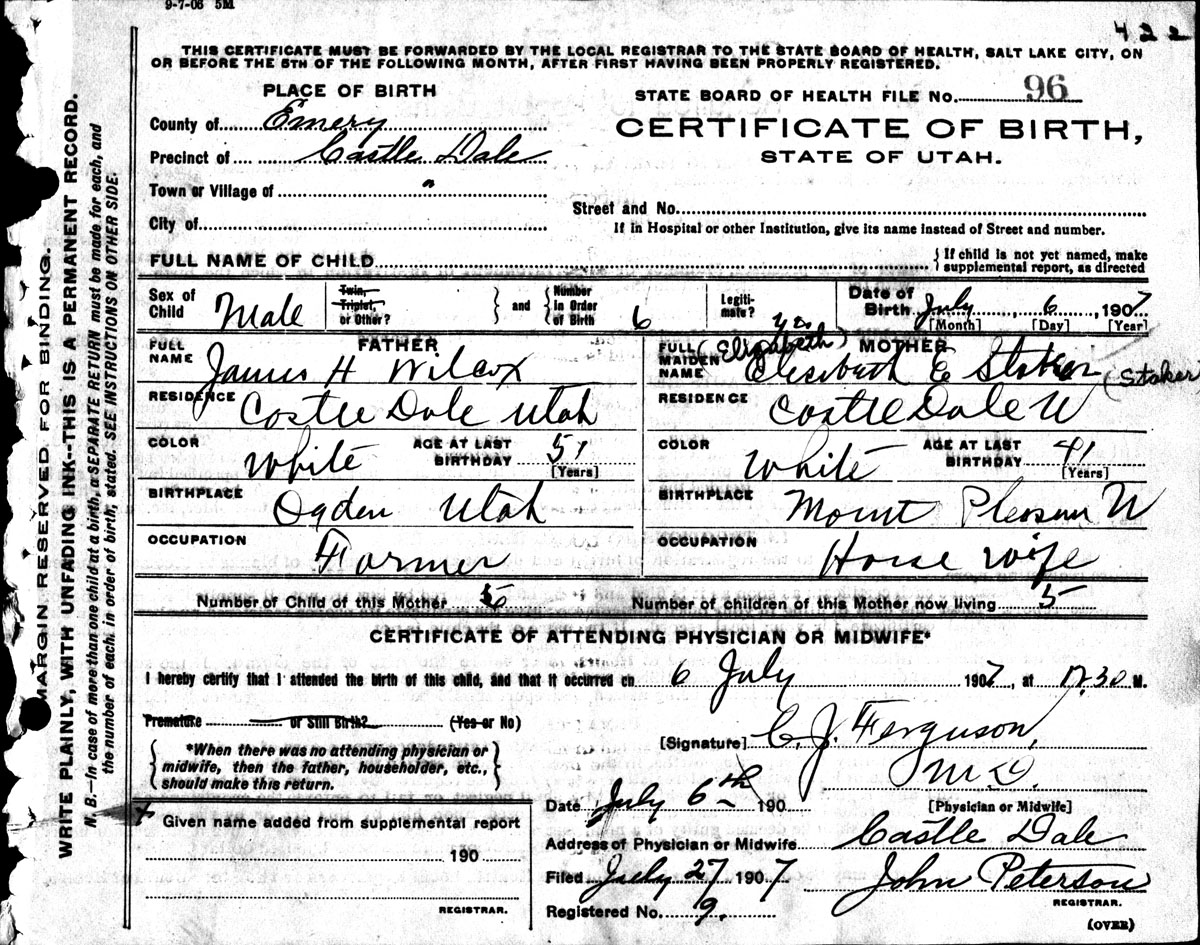 9-7-06 5M
422
THIS CERTIFICATE MUST BE FORWARDED BY THE LOCAL REGISTRAR TO THE STATE BOARD OF HEALTH, SALT LAKE CITY, ON
OR BEFORE THE 5TH OF THE FOLLOWING MONTH, AFTER FIRST HAVING BEEN PROPERLY REGISTERED.
PLACE OF BIRTH
STATE BOARD OF HEALTH FILE No. 96
County of Emery
CERTIFICATE OF BIRTH,
STATE OF UTAH.
Precinct of Castle Dale
Town or Village of "
Street and No.
City of
If in Hospital or other Institution, give its name instead of Street and number.
FULL NAME OF CHILD
{ If child is not yet named, make
supplemental report, as directed
Sex of Child Male
Twin, Triplet, or Other? } and { Number in Order of Birth 6
Legitimate? yes
Date of Birth July 6, 1907
[Month] [Day] [Year]
FATHER
FULL NAME James H Wilcox
RESIDENCE Castle Dale Utah
COLOR White AGE AT LAST BIRTHDAY 51 [Years]
BIRTHPLACE Ogden Utah
OCCUPATION Farmer
MOTHER
(Elizabeth)
FULL MAIDEN NAME Elesibath E Staker (Staker)
RESIDENCE Castle Dale U
COLOR White AGE AT LAST BIRTHDAY 41 [Years]
BIRTHPLACE Mount Pleasan U
OCCUPATION House wife
Number of Child of this Mother 6 Number of children of this Mother now living 5
CERTIFICATE OF ATTENDING PHYSICIAN OR MIDWIFE*
I hereby certify that I attended the birth of this child, and that it occurred on 6 July 1907, at 12.30 M.
Premature or Still Birth? (Yes or No)
{ *When there was no attending physician or
midwife, then the father, householder, etc.,
should make this return. }
[Signature] C. J. Ferguson,
M D.
[Physician or Midwife]
Date July 6th 190
Address of Physician or Midwife Castle Dale
Filed July 27 1907 John Peterson
REGISTRAR.
Registered No. 9.
(OVER)
Given name added from supplemental report
190
REGISTRAR.
MARGIN RESERVED FOR BINDING.
WRITE PLAINLY, WITH UNFADING INK--THIS IS A PERMANENT RECORD.
N. B.—In case of more than one child at a birth, a SEPARATE RETURN must be made for each, and
the number of each, in order of birth, stated. SEE INSTRUCTIONS ON OTHER SIDE.